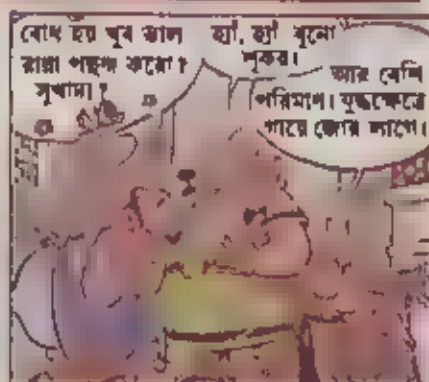 বোধ হয় খুব ভাল
রান্না পছন্দ করো?
সুখাদ্য?
হ্যাঁ, হ্যাঁ বুনো
শূকর।
আর বেশি
পরিমাণ। যুদ্ধক্ষেত্রে
গায়ে জোর লাগে।